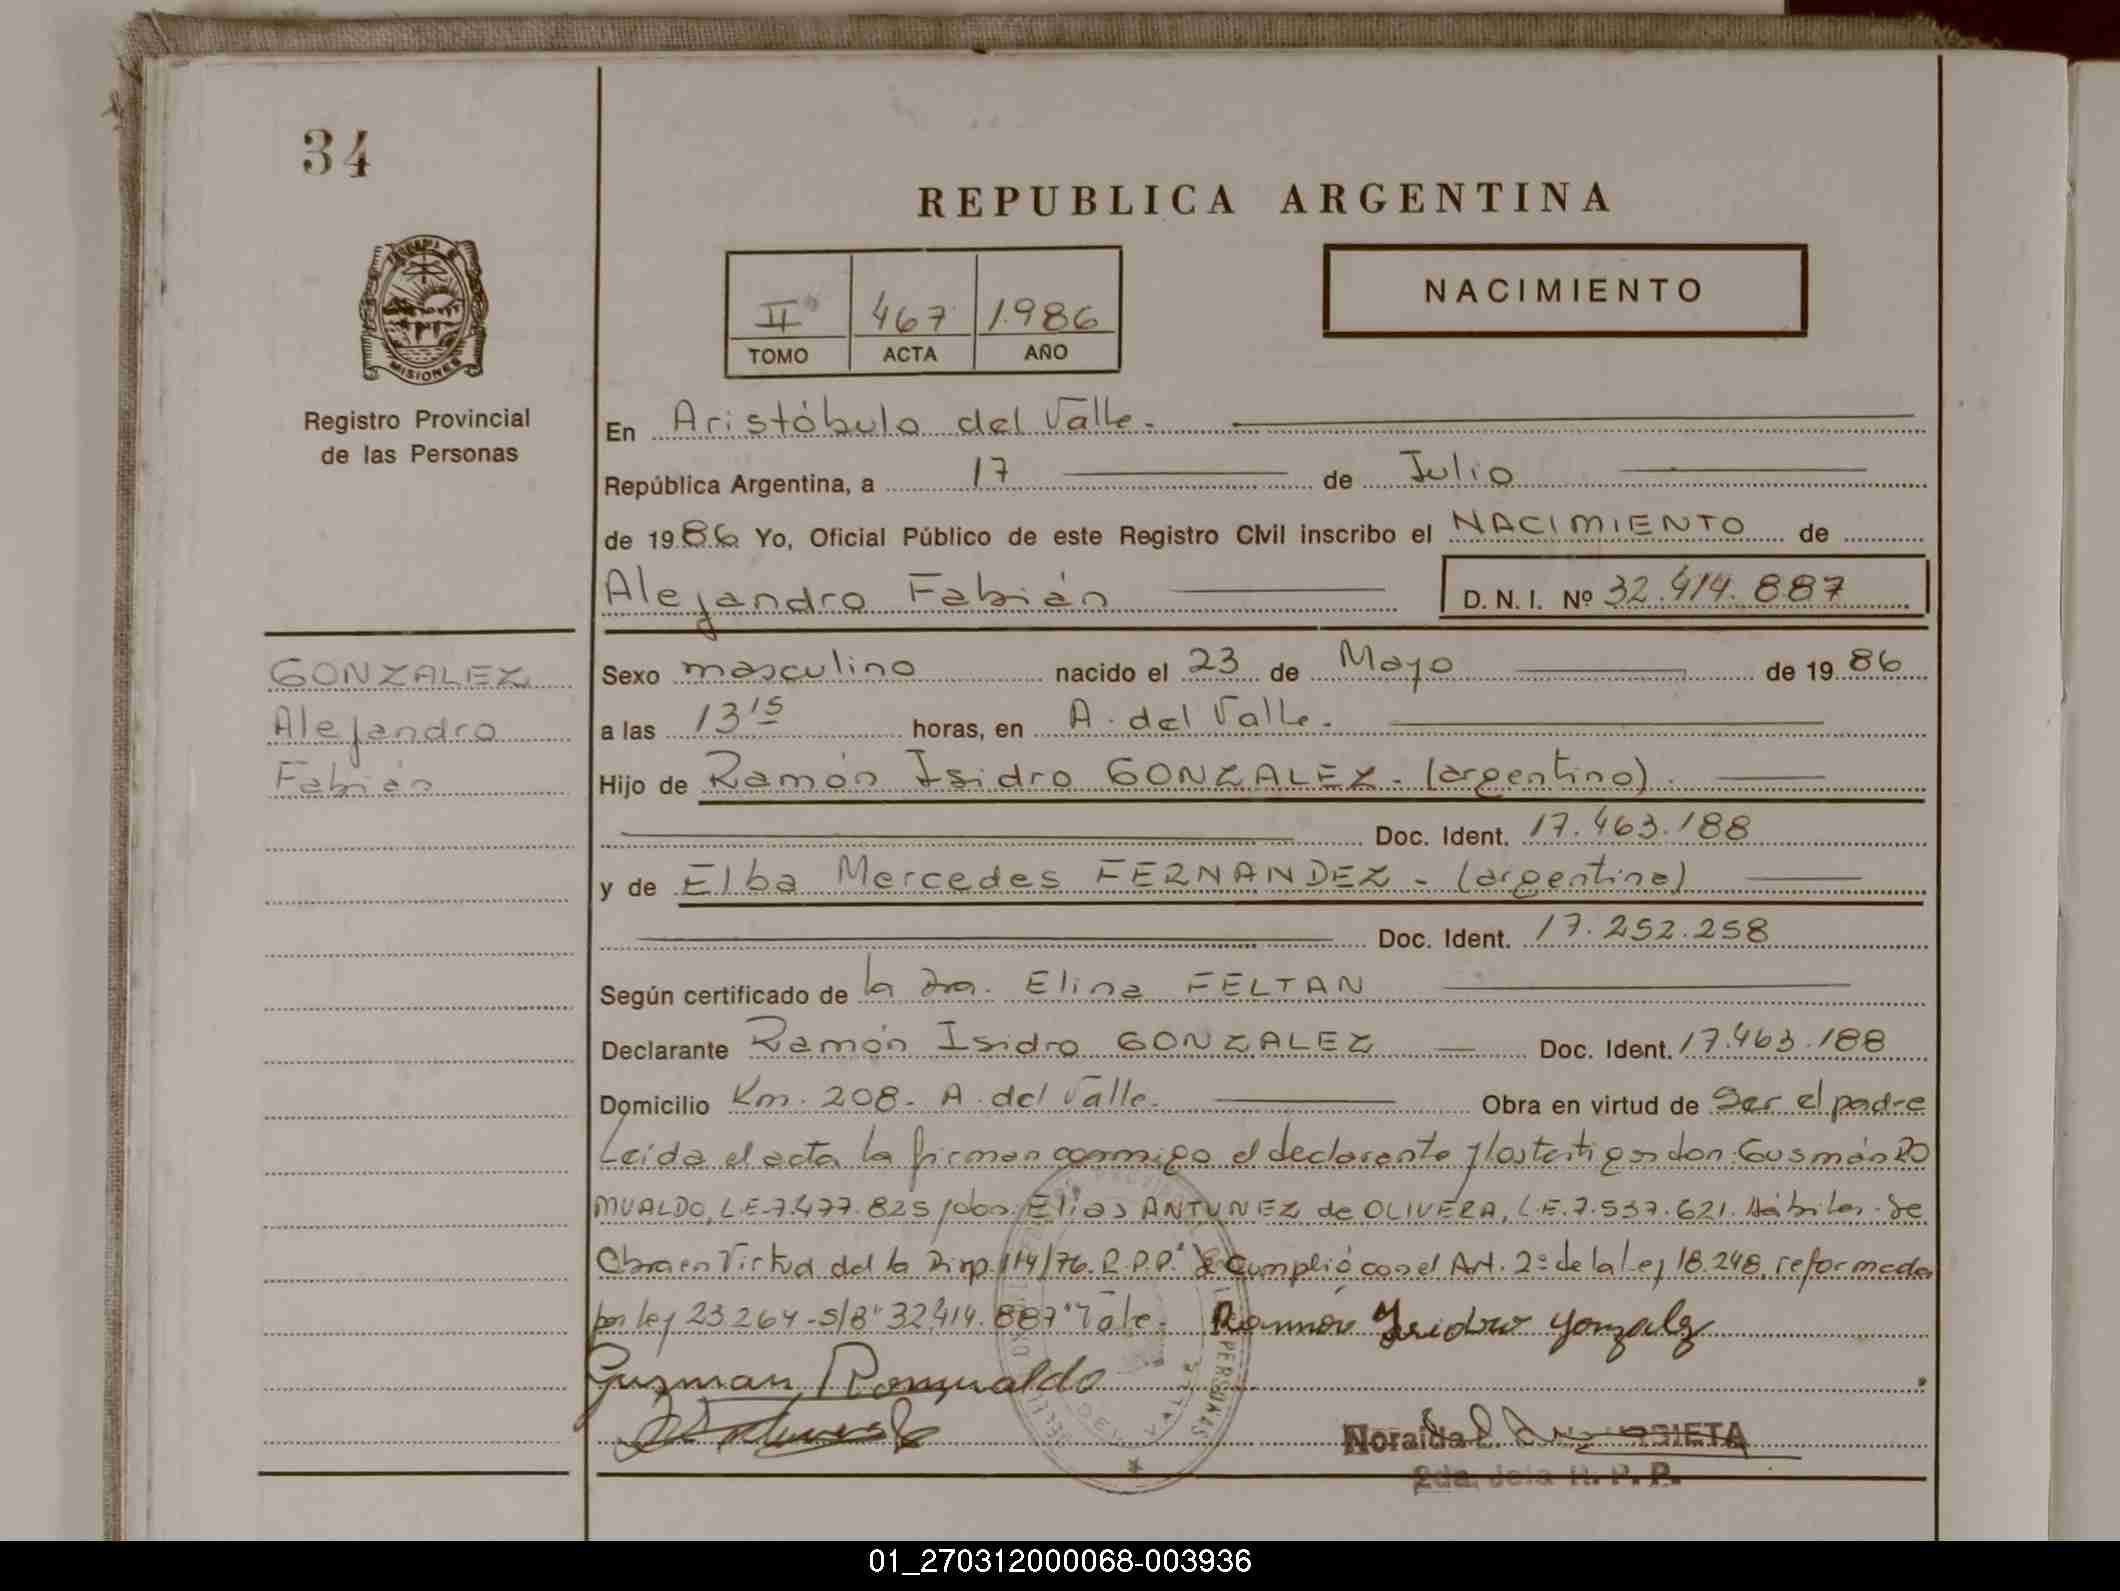 34
REPUBLICA ARGENTINA
NACIMIENTO
II 467 1.986
TOMO ACTA AÑO
MISIONES
Registro Provincial
de las Personas
En Aristóbulo del Valle.
República Argentina, a 17 de Julio
de 1986 Yo, Oficial Público de este Registro Civil inscribo el NACIMIENTO de
Alejandro Fabián D. N. I. Nº 32.414.887
GONZALEZ
Alejandro
Fabián
Sexo masculino nacido el 23 de Mayo de 1986
a las 13 15 horas, en A. del Valle.
Hijo de Ramón Isidro GONZALEZ - (argentino).
Doc. Ident. 17.463.188
y de Elba Mercedes FERNANDEZ - (argentina)
Doc. Ident. 17.252.258
Según certificado de la Dra. Elina FELTAN
Declarante Ramón Isidro GONZALEZ Doc. Ident. 17.463.188
Domicilio Km. 208. A. del Valle. Obra en virtud de Ser el padre
Leída el acta la firman conmigo el declarante y los testigos don: Gusmán RO
MUALDO, L.E. 7.477.825 y don Elias ANTUNEZ de OLIVERA, L.E. 7.537.621. Hábiles. Se
Obra en Virtud del la Disp. 114/76. R.P.P. Cumplió con el Art. 2º de la ley 18.248, reformada
por ley 23264 - S/B "32.414.887" Vale. Ramón Isidro Gonzalez
Guzman Romualdo
Noraida
2da. Jefa R. P. P.
PERSONAS
01_270312000068-003936